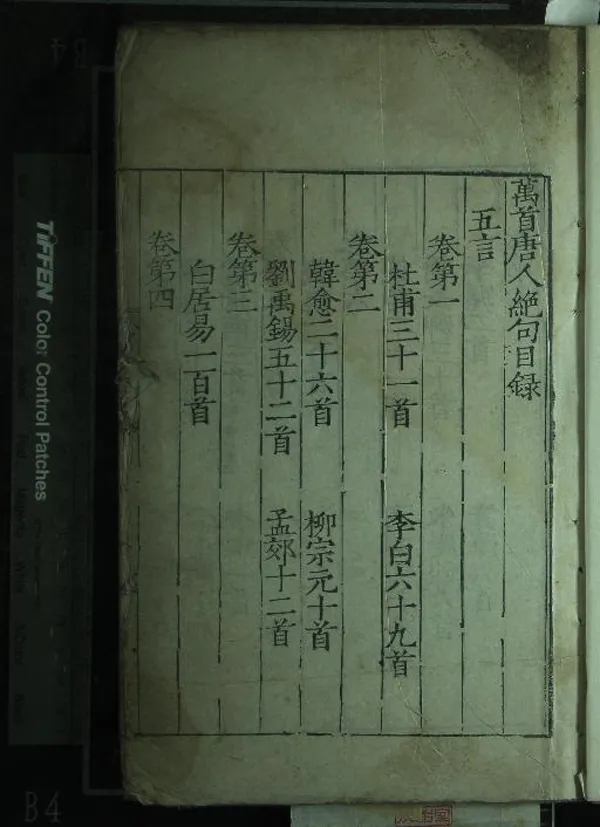 萬首唐人絶句目録
五言
卷第一
杜甫三十一首 李白六十九首
卷第二
韓愈二十六首 柳宗元十首
劉禹錫五十二首 孟郊十二首
卷第三
白居易一百首
卷第四
TIFFEN Color Control Patches
B4
B4